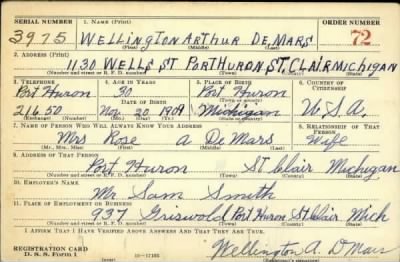 SERIAL NUMBER 1. NAME (Print) ORDER NUMBER
3975 WELLINGTON ARTHUR DE MARS 72
(First) (Middle) (Last)
2. ADDRESS (Print)
1130 WELLS ST PORT HURON, ST. CLAIR MICHIGAN
(Number and street or R. F. D. number) (Town) (County) (State)
3. TELEPHONE 4. AGE IN YEARS 5. PLACE OF BIRTH 6. COUNTRY OF CITIZENSHIP
Port Huron 30 Port Huron
(Town or county)
DATE OF BIRTH
21650 Nov. 20 1909 Michigan U.S.A.
(Exchange) (Number) (Mo.) (Day) (Yr.) (State or country)
7. NAME OF PERSON WHO WILL ALWAYS KNOW YOUR ADDRESS 8. RELATIONSHIP OF THAT PERSON
Mrs Rose A De Mars Wife
(Mr., Mrs., Miss) (First) (Middle) (Last)
9. ADDRESS OF THAT PERSON
Port Huron St Clair Michigan
(Number and street or R. F. D. number) (Town) (County) (State)
10. EMPLOYER'S NAME
Mr. Sam Smith
11. PLACE OF EMPLOYMENT OR BUSINESS
937 Griswold Port Huron St. Clair Mich
(Number and street or R. F. D. number) (Town) (County) (State)
I AFFIRM THAT I HAVE VERIFIED ABOVE ANSWERS AND THAT THEY ARE TRUE.
REGISTRATION CARD
D. S. S. Form 1 16—17105 Wellington A. DMars